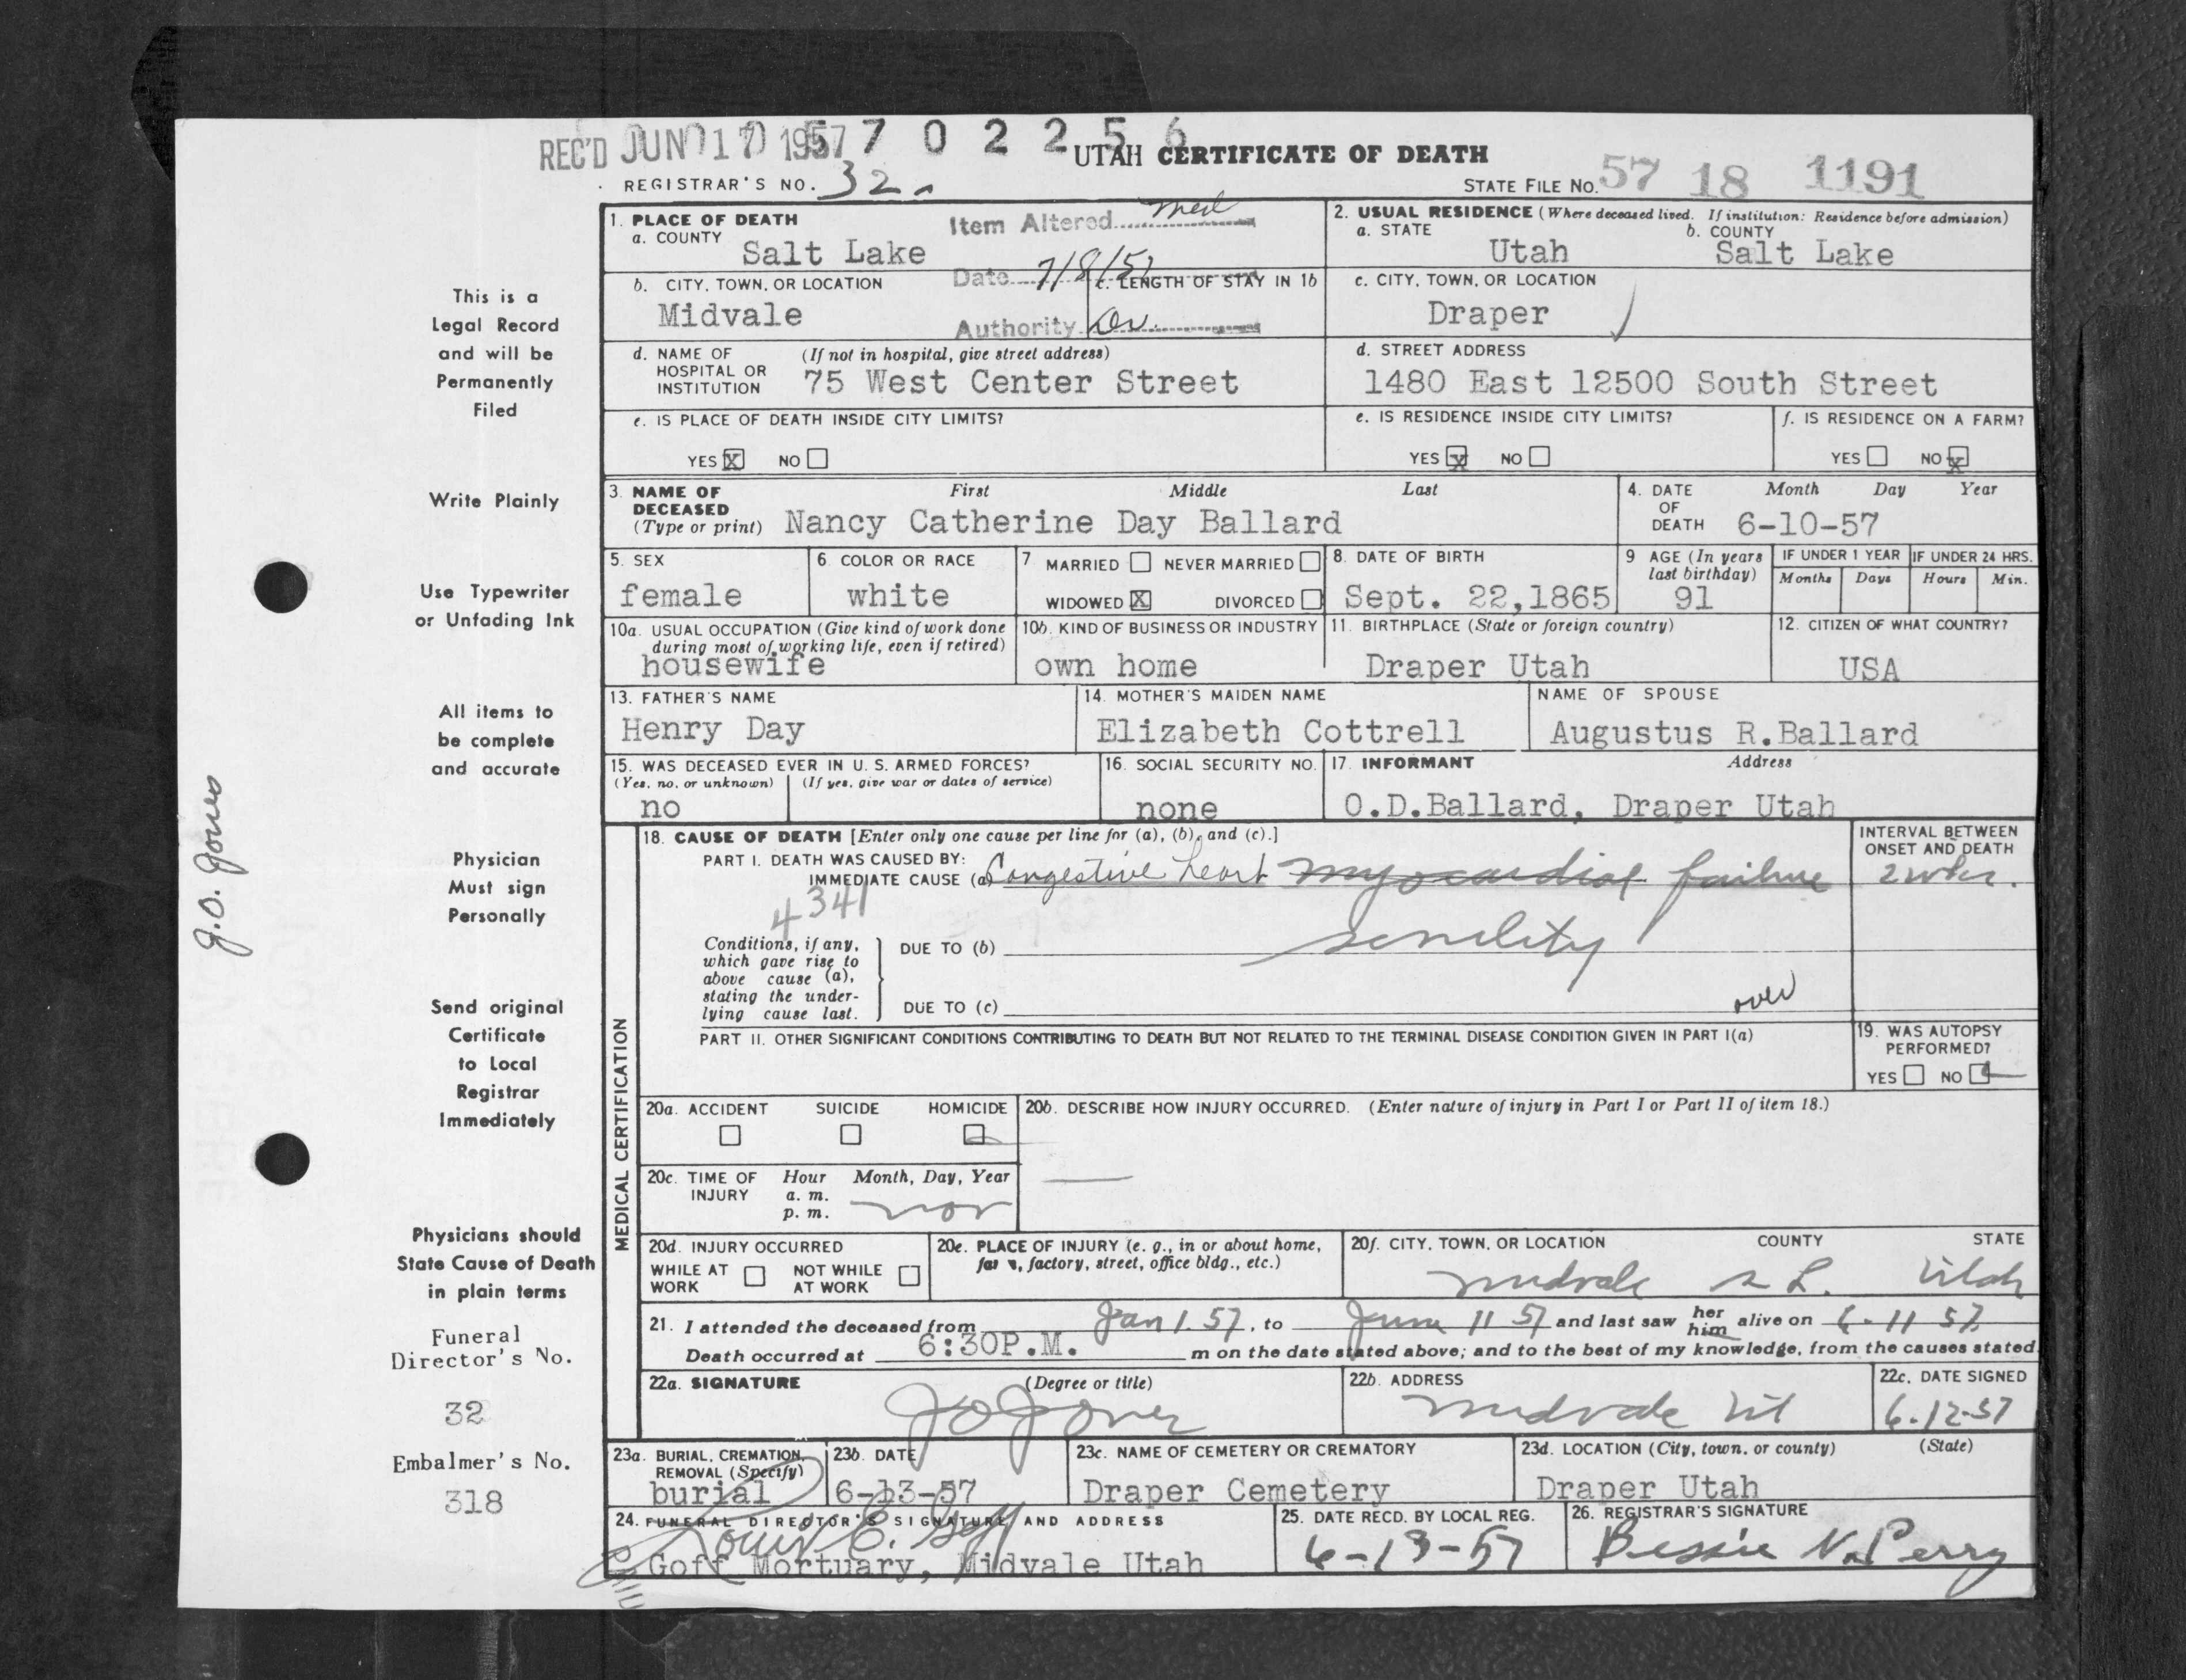 REC'D JUN 17 1957 7 0 2 2 5 6
UTAH CERTIFICATE OF DEATH
REGISTRAR'S NO. 32
STATE FILE NO. 57 18 1191
1. PLACE OF DEATH
a. COUNTY
Salt Lake
Item Altered med
Date 7/8/57
Authority Dr.
2. USUAL RESIDENCE (Where deceased lived. If institution: Residence before admission)
a. STATE
Utah
b. COUNTY
Salt Lake
b. CITY, TOWN, OR LOCATION
Midvale
c. LENGTH OF STAY IN 1b
c. CITY, TOWN, OR LOCATION
Draper
d. NAME OF HOSPITAL OR INSTITUTION
(If not in hospital, give street address)
75 West Center Street
d. STREET ADDRESS
1480 East 12500 South Street
e. IS PLACE OF DEATH INSIDE CITY LIMITS?
YES X NO
e. IS RESIDENCE INSIDE CITY LIMITS?
YES X NO
f. IS RESIDENCE ON A FARM?
YES NO X
3. NAME OF DECEASED
(Type or print)
First Middle Last
Nancy Catherine Day Ballard
4. DATE OF DEATH
Month Day Year
6-10-57
5. SEX
female
6. COLOR OR RACE
white
7 MARRIED NEVER MARRIED
WIDOWED X DIVORCED
8. DATE OF BIRTH
Sept. 22,1865
9 AGE (In years last birthday)
91
IF UNDER 1 YEAR
Months Days
IF UNDER 24 HRS.
Hours Min.
10a. USUAL OCCUPATION (Give kind of work done
during most of working life, even if retired)
housewife
10b. KIND OF BUSINESS OR INDUSTRY
own home
11. BIRTHPLACE (State or foreign country)
Draper Utah
12. CITIZEN OF WHAT COUNTRY?
USA
13. FATHER'S NAME
Henry Day
14. MOTHER'S MAIDEN NAME
Elizabeth Cottrell
NAME OF SPOUSE
Augustus R.Ballard
15. WAS DECEASED EVER IN U. S. ARMED FORCES?
(Yes, no, or unknown) (If yes, give war or dates of service)
no
16. SOCIAL SECURITY NO.
none
17. INFORMANT Address
O.D.Ballard, Draper Utah
MEDICAL CERTIFICATION
18. CAUSE OF DEATH [Enter only one cause per line for (a), (b), and (c).]
PART I. DEATH WAS CAUSED BY:
IMMEDIATE CAUSE (a) Congestive heart myocardial failure
INTERVAL BETWEEN
ONSET AND DEATH
2 wks.
4341
Conditions, if any,
which gave rise to
above cause (a),
stating the under-
lying cause last.
DUE TO (b) senility
DUE TO (c)
over
PART II. OTHER SIGNIFICANT CONDITIONS CONTRIBUTING TO DEATH BUT NOT RELATED TO THE TERMINAL DISEASE CONDITION GIVEN IN PART I(a)
19. WAS AUTOPSY
PERFORMED?
YES NO
20a. ACCIDENT SUICIDE HOMICIDE
20b. DESCRIBE HOW INJURY OCCURRED. (Enter nature of injury in Part I or Part II of item 18.)
20c. TIME OF INJURY
Hour Month, Day, Year
a. m.
p. m.
20d. INJURY OCCURRED
WHILE AT WORK NOT WHILE AT WORK
20e. PLACE OF INJURY (e. g., in or about home,
farm, factory, street, office bldg., etc.)
20f. CITY, TOWN, OR LOCATION COUNTY STATE
Midvale S L. Utah
21. I attended the deceased from Jan 1. 57, to June 11 57 and last saw her him alive on 6-11 57.
Death occurred at 6:30P.M. m on the date stated above; and to the best of my knowledge, from the causes stated
22a. SIGNATURE (Degree or title)
J O Jones
22b. ADDRESS
Midvale Ut
22c. DATE SIGNED
6-12-57
23a. BURIAL, CREMATION,
REMOVAL (Specify)
burial
23b. DATE
6-13-57
23c. NAME OF CEMETERY OR CREMATORY
Draper Cemetery
23d. LOCATION (City, town, or county) (State)
Draper Utah
24. FUNERAL DIRECTOR'S SIGNATURE AND ADDRESS
Louis E. Goff
Goff Mortuary, Midvale Utah
25. DATE RECD. BY LOCAL REG.
6-13-57
26. REGISTRAR'S SIGNATURE
Bessie N. Perry
This is a
Legal Record
and will be
Permanently
Filed
Write Plainly
Use Typewriter
or Unfading Ink
All items to
be complete
and accurate
Physician
Must sign
Personally
Send original
Certificate
to Local
Registrar
Immediately
Physicians should
State Cause of Death
in plain terms
Funeral
Director's No.
32
Embalmer's No.
318
J.O. Jones